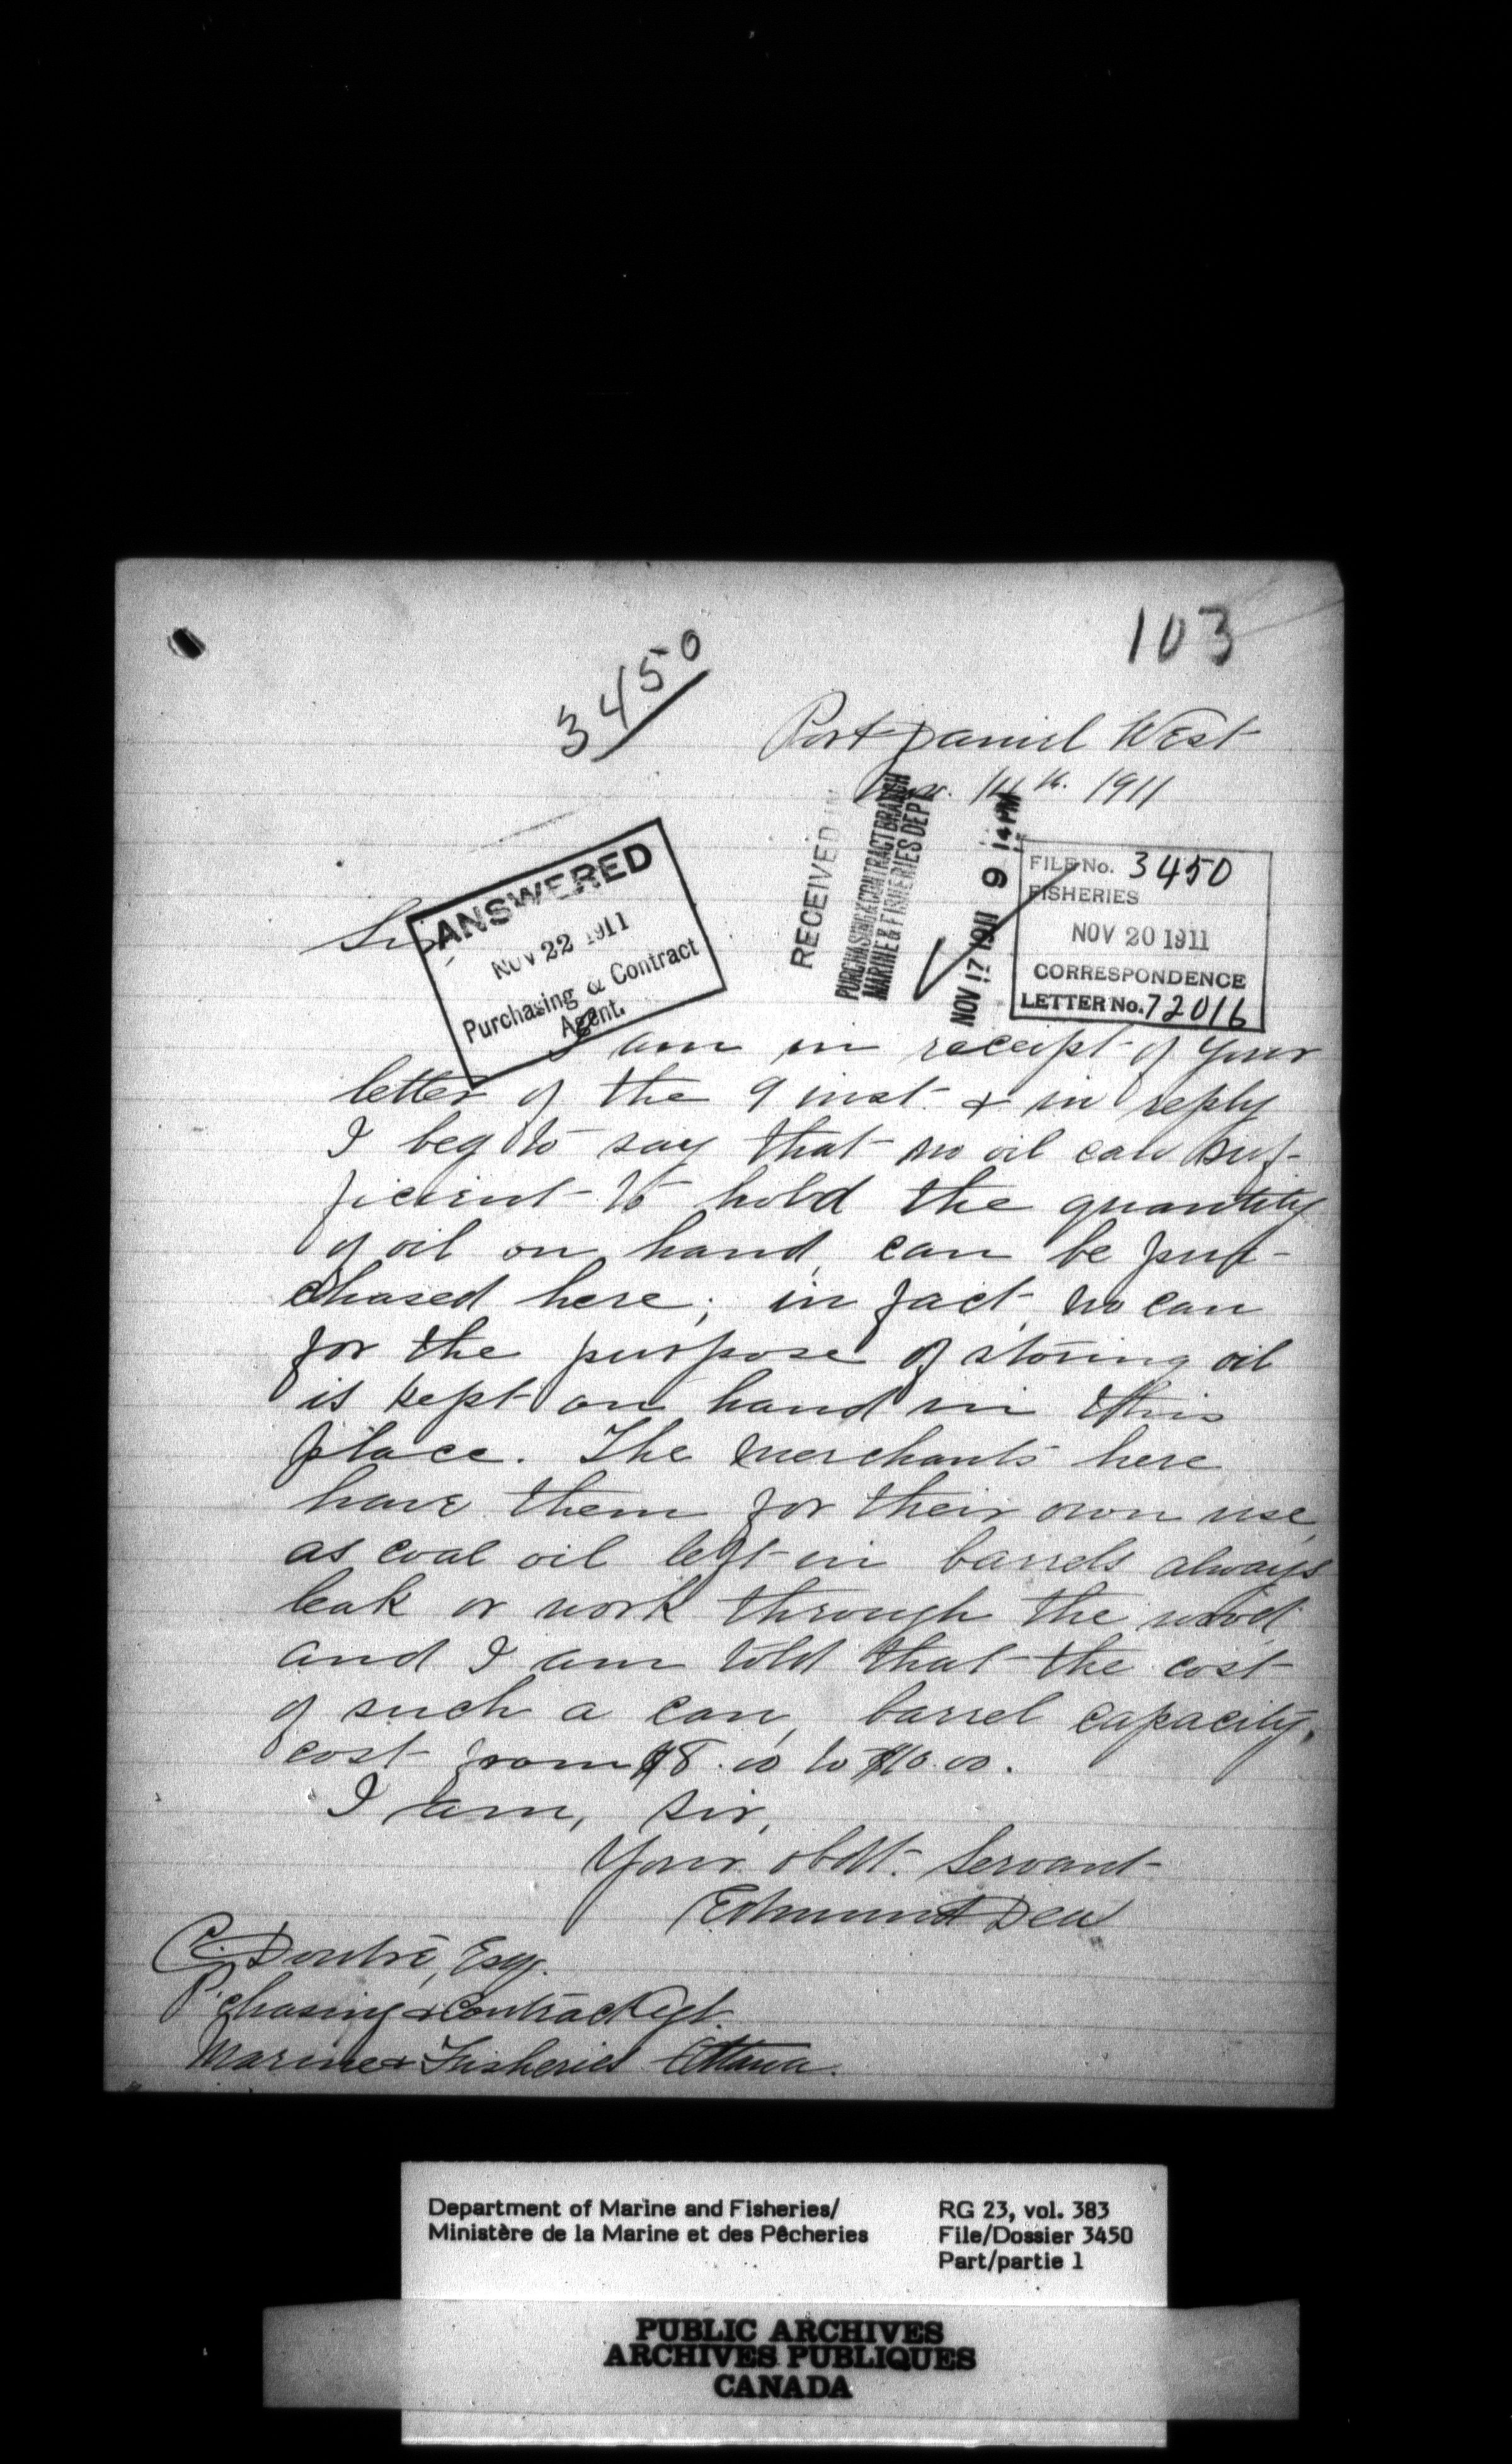 103
3450
Port Daniel West
Nov. 14th. 1911
RECEIVED IN
PURCHASING & CONTRACT BRANCH
MARINE & FISHERIES DEPT
NOV 17 1911 9 14 PM
FILE No. 3450
FISHERIES
NOV 20 1911
CORRESPONDENCE
LETTER No. 72016
ANSWERED
NOV 22 1911
Purchasing & Contract
Agent.
Sir,
I am in receipt of your
letter of the 9 inst. & in reply
I beg to say that no oil can suf-
ficient to hold the quantity
of oil on hand, can be pur-
chased here; in fact no can
for the purpose of storing oil
is kept on hand in this
place. The merchants here
have them for their own use,
as coal oil left in barrels always
leak or work through the wood
and I am told that the cost
of such a can, barrel capacity,
cost from $8.00 to $10.00.
I am, sir,
Your obdt. Servant
Edmund Dea
C. Doutré, Esq.
P.chasing & Contract Agt.
Marine & Fisheries Ottawa.
Department of Marine and Fisheries/
Ministère de la Marine et des Pêcheries
RG 23, vol. 383
File/Dossier 3450
Part/partie 1
PUBLIC ARCHIVES
ARCHIVES PUBLIQUES
CANADA